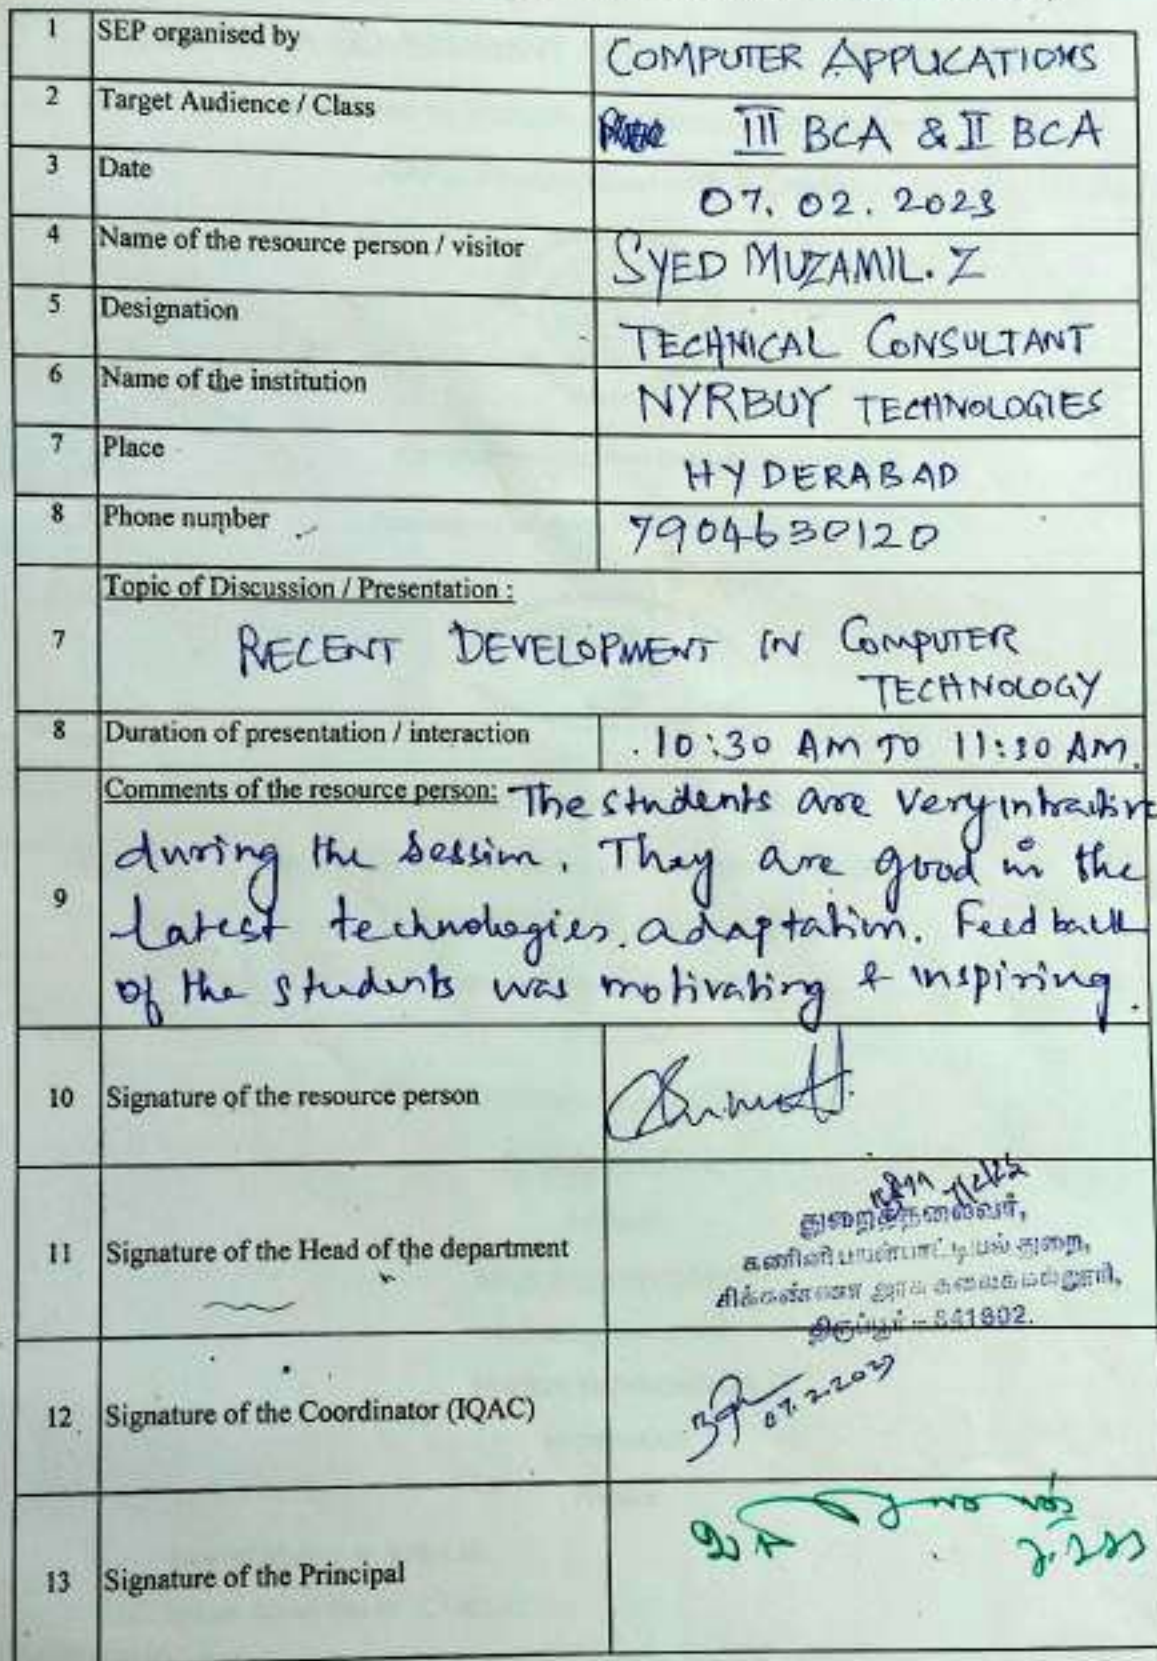 1 SEP organised by COMPUTER APPLICATIONS
2 Target Audience / Class III BCA & II BCA
3 Date 07.02.2023
4 Name of the resource person / visitor SYED MUZAMIL. Z
5 Designation TECHNICAL CONSULTANT
6 Name of the institution NYRBUY TECHNOLOGIES
7 Place HYDERABAD
8 Phone number 7904630120
7 Topic of Discussion / Presentation :
RECENT DEVELOPMENT IN COMPUTER
TECHNOLOGY
8 Duration of presentation / interaction 10:30 AM TO 11:30 AM.
9 Comments of the resource person: The students are very intractive
during the session. They are good in the
latest technologies adaptation. Feedback
of the students was motivating & inspiring.
10 Signature of the resource person
11 Signature of the Head of the department
துறைத்தலைவர்,
கணினி பயன்பாட்டியல் துறை,
சிக்கண்ணா அரசு கலைக்கல்லூரி,
திருப்பூர் - 641602.
12 Signature of the Coordinator (IQAC) 07.2.2023
13 Signature of the Principal